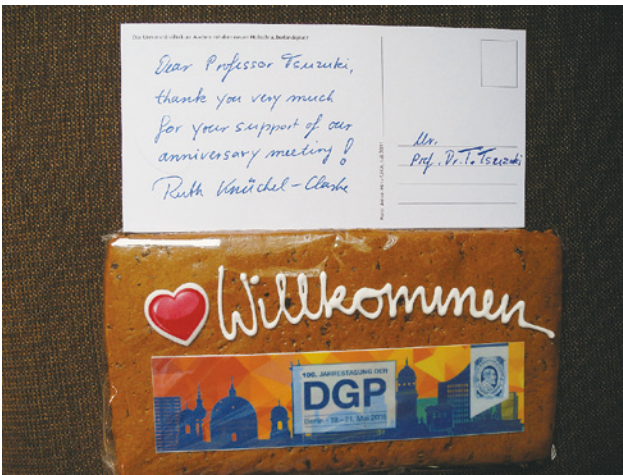 Dear Professor Tsuzuki,
thank you very much
for your support of our
anniversary meeting!
Ruth Knüchel-Clarke
Mr.
Prof. Dr. T. Tsuzuki
Willkommen
100. JAHRESTAGUNG DER
DGP
Berlin